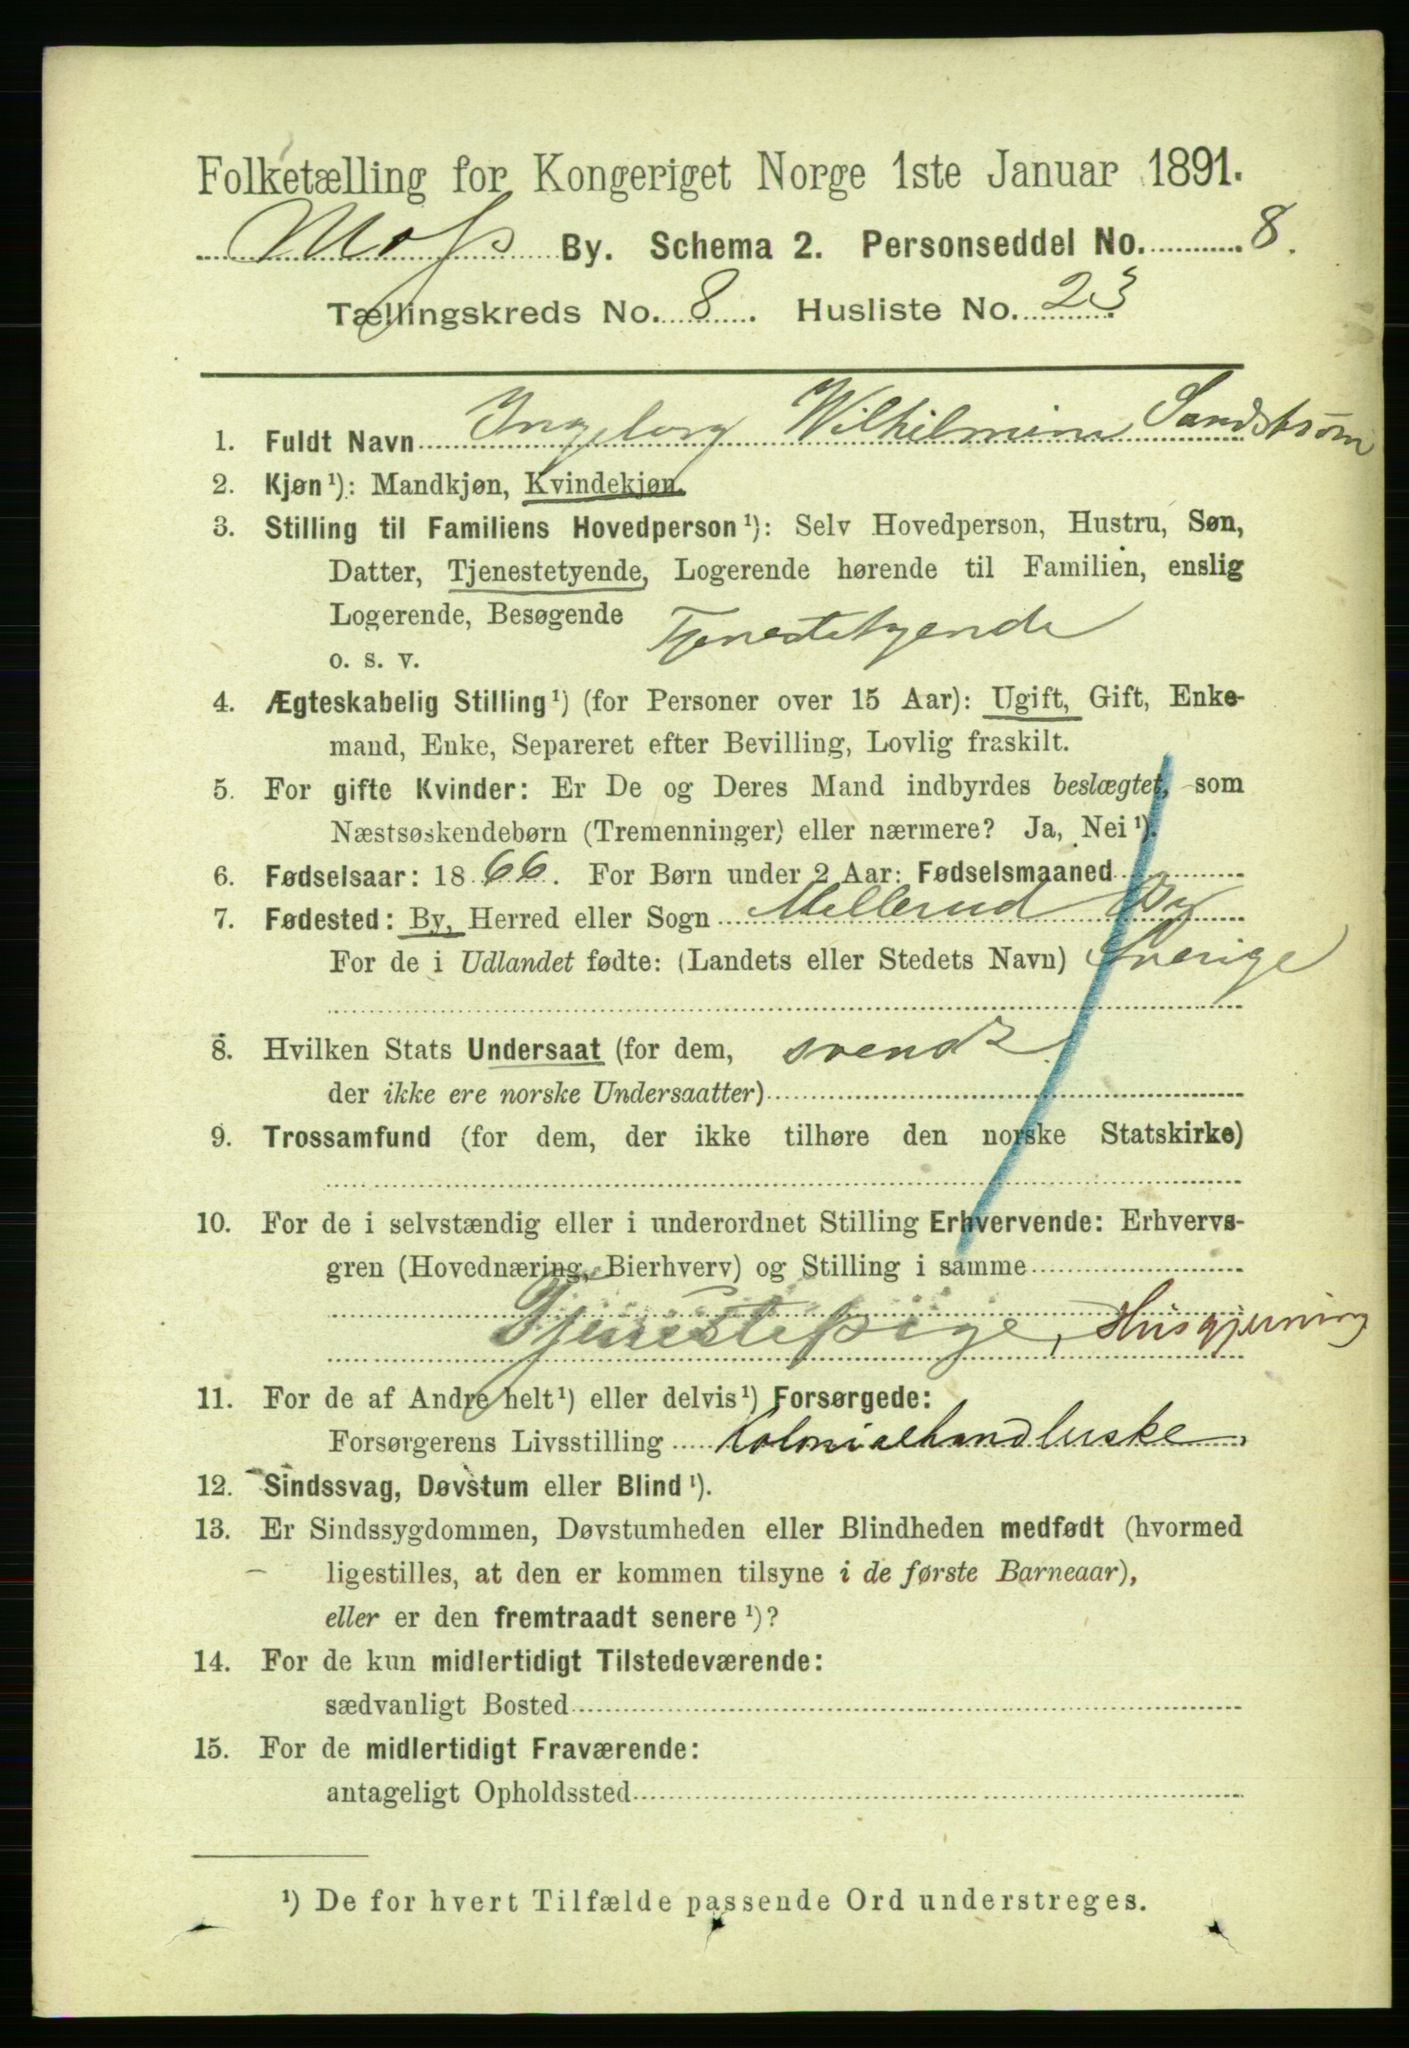 Folketælling for Kongeriget Norge 1ste Januar 1891.
Moss By. Schema 2. Personseddel No. 8.
Tællingskreds No. 8. Husliste No. 23
1. Fuldt Navn Ingeborg Wilhilmine Sandström
2. Kjøn¹): Mandkjøn, Kvindekjøn.
3. Stilling til Familiens Hovedperson¹): Selv Hovedperson, Hustru, Søn,
Datter, Tjenestetyende, Logerende hørende til Familien, enslig
Logerende, Besøgende
o. s. v. Tjenestetyende
4. Ægteskabelig Stilling¹) (for Personer over 15 Aar): Ugift, Gift, Enke-
mand, Enke, Separeret efter Bevilling, Lovlig fraskilt.
5. For gifte Kvinder: Er De og Deres Mand indbyrdes beslægtet, som
Næstsøskendebørn (Tremenninger) eller nærmere? Ja, Nei¹).
6. Fødselsaar: 1866. For Børn under 2 Aar: Fødselsmaaned
7. Fødested: By, Herred eller Sogn Mellerud By
For de i Udlandet fødte: (Landets eller Stedets Navn) Sverige
8. Hvilken Stats Undersaat (for dem, svensk
der ikke ere norske Undersaatter)
9. Trossamfund (for dem, der ikke tilhøre den norske Statskirke)
10. For de i selvstændig eller i underordnet Stilling Erhvervende: Erhvervs-
gren (Hovednæring, Bierhverv) og Stilling i samme
Tjenestepige, Husgjerning
11. For de af Andre helt¹) eller delvis¹) Forsørgede:
Forsørgerens Livsstilling Colonialhandlerske
12. Sindssvag, Døvstum eller Blind¹).
13. Er Sindssygdommen, Døvstumheden eller Blindheden medfødt (hvormed
ligestilles, at den er kommen tilsyne i de første Barneaar),
eller er den fremtraadt senere¹)?
14. For de kun midlertidigt Tilstedeværende:
sædvanligt Bosted
15. For de midlertidigt Fraværende:
antageligt Opholdssted
¹) De for hvert Tilfælde passende Ord understreges.